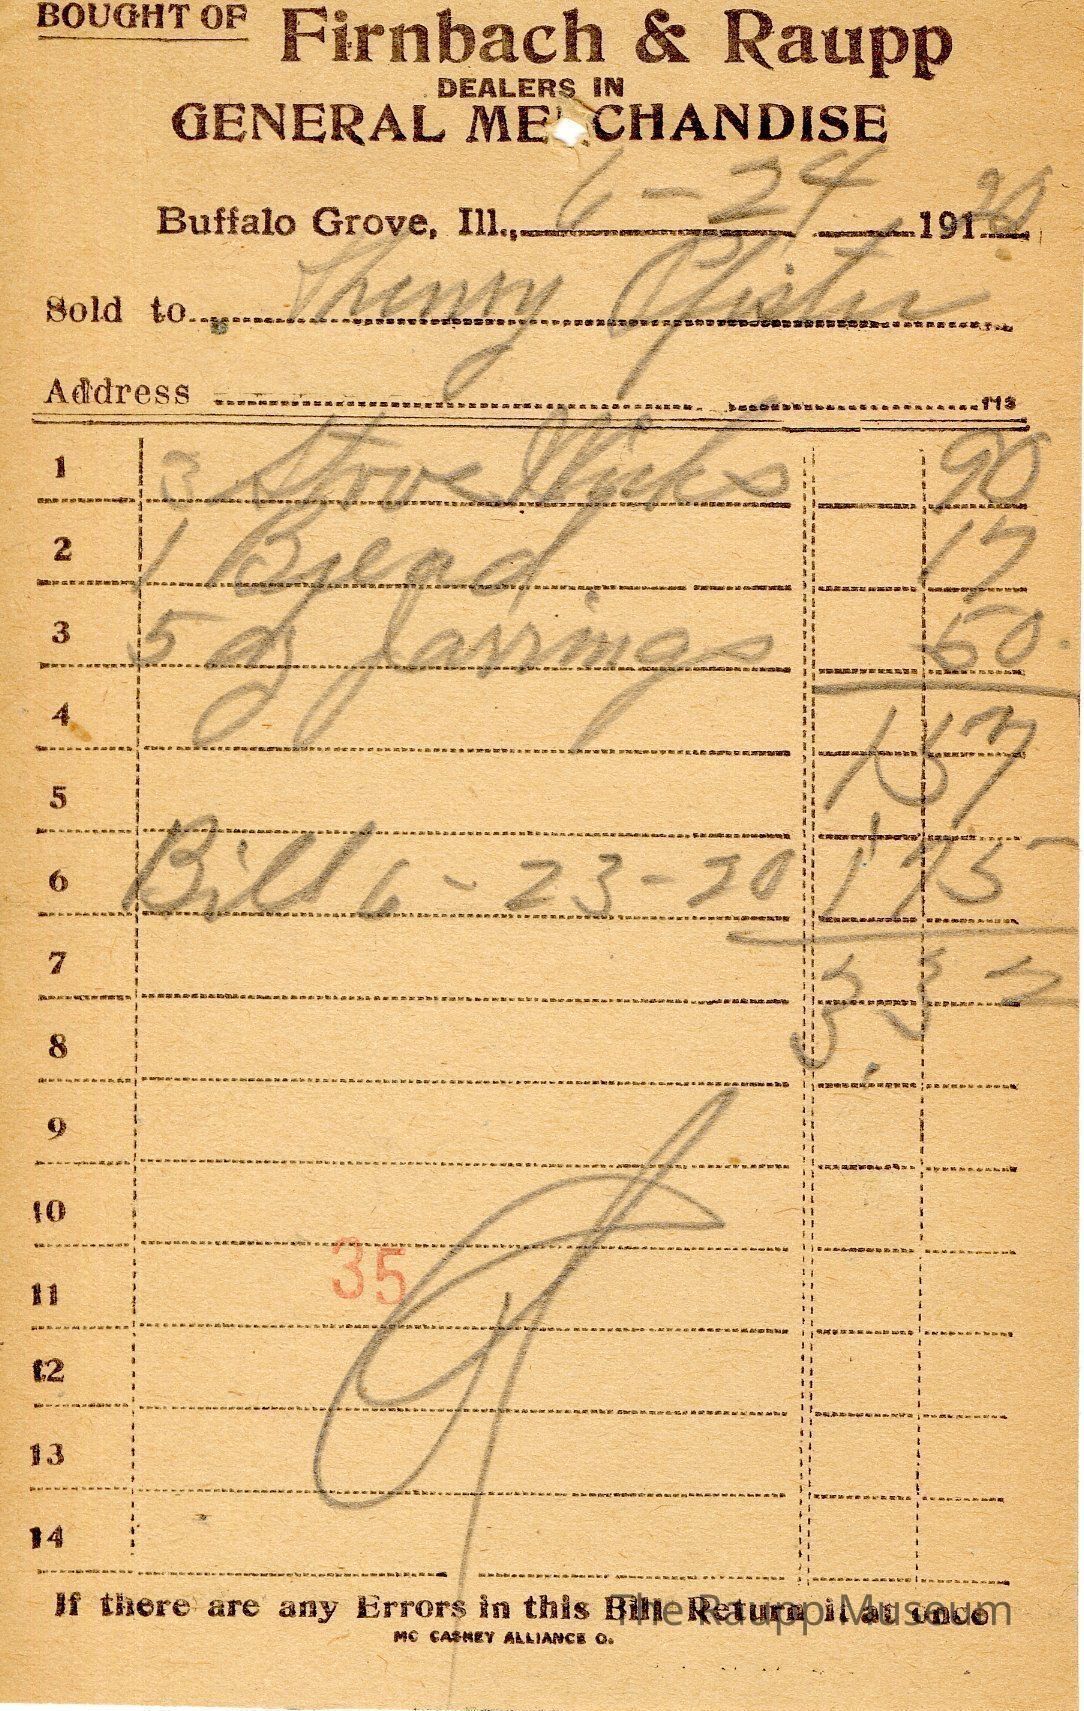 BOUGHT OF Firnbach & Raupp
DEALERS IN
GENERAL MERCHANDISE
Buffalo Grove, Ill., 6-24 191 20
Sold to Henry Pfister
Address
1 3 Stove Wicks 90
2 1 Bread 17
3 5 dz Jar rings 50
4 157
5
6 Bill 6-23-20 175
7 3.32
8
9
10
35
11
12
13
14
If there are any Errors in this Bill Return it at once
MC CASKEY ALLIANCE O.
The Raupp Museum